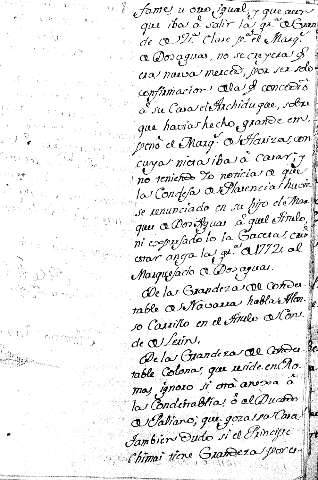 fante u otro igual, y que aun
que iba à salir la gr.ª de Gran
de de 1.ª Clase p.ª el Marq.s
de Dosaguas, no se creyera q.e
era nueva merced, por ser solo
confirmacion de la q.e concedió
à su Casa el Archiduque, sobre
que havia hecho grande em
peño el Marq.s de Hariza, con
cuya nieta iba à casar; y
no teniendo Yo noticia de que
la Condesa de Plasencia huviese
renunciado en su hijo el Mar
ques de Dos Aguas aquel titulo,
ni expresado lo la Gaceta
la gr.ª de 1772, al
Marquesado de Dosaguas.
De la Grandeza de Condes
table de Navarra habla Alon
so Carrillo en el titulo de Con
de de Lerin.
De la Grandeza del Condes
table Colona, que reside en Ro
ma, ignoro si està anexa à
la Condestablia, ò al Ducado
de Paliano, que goza su Casa
tambien dudo si el Principe
Chimai tiene Grandeza por es